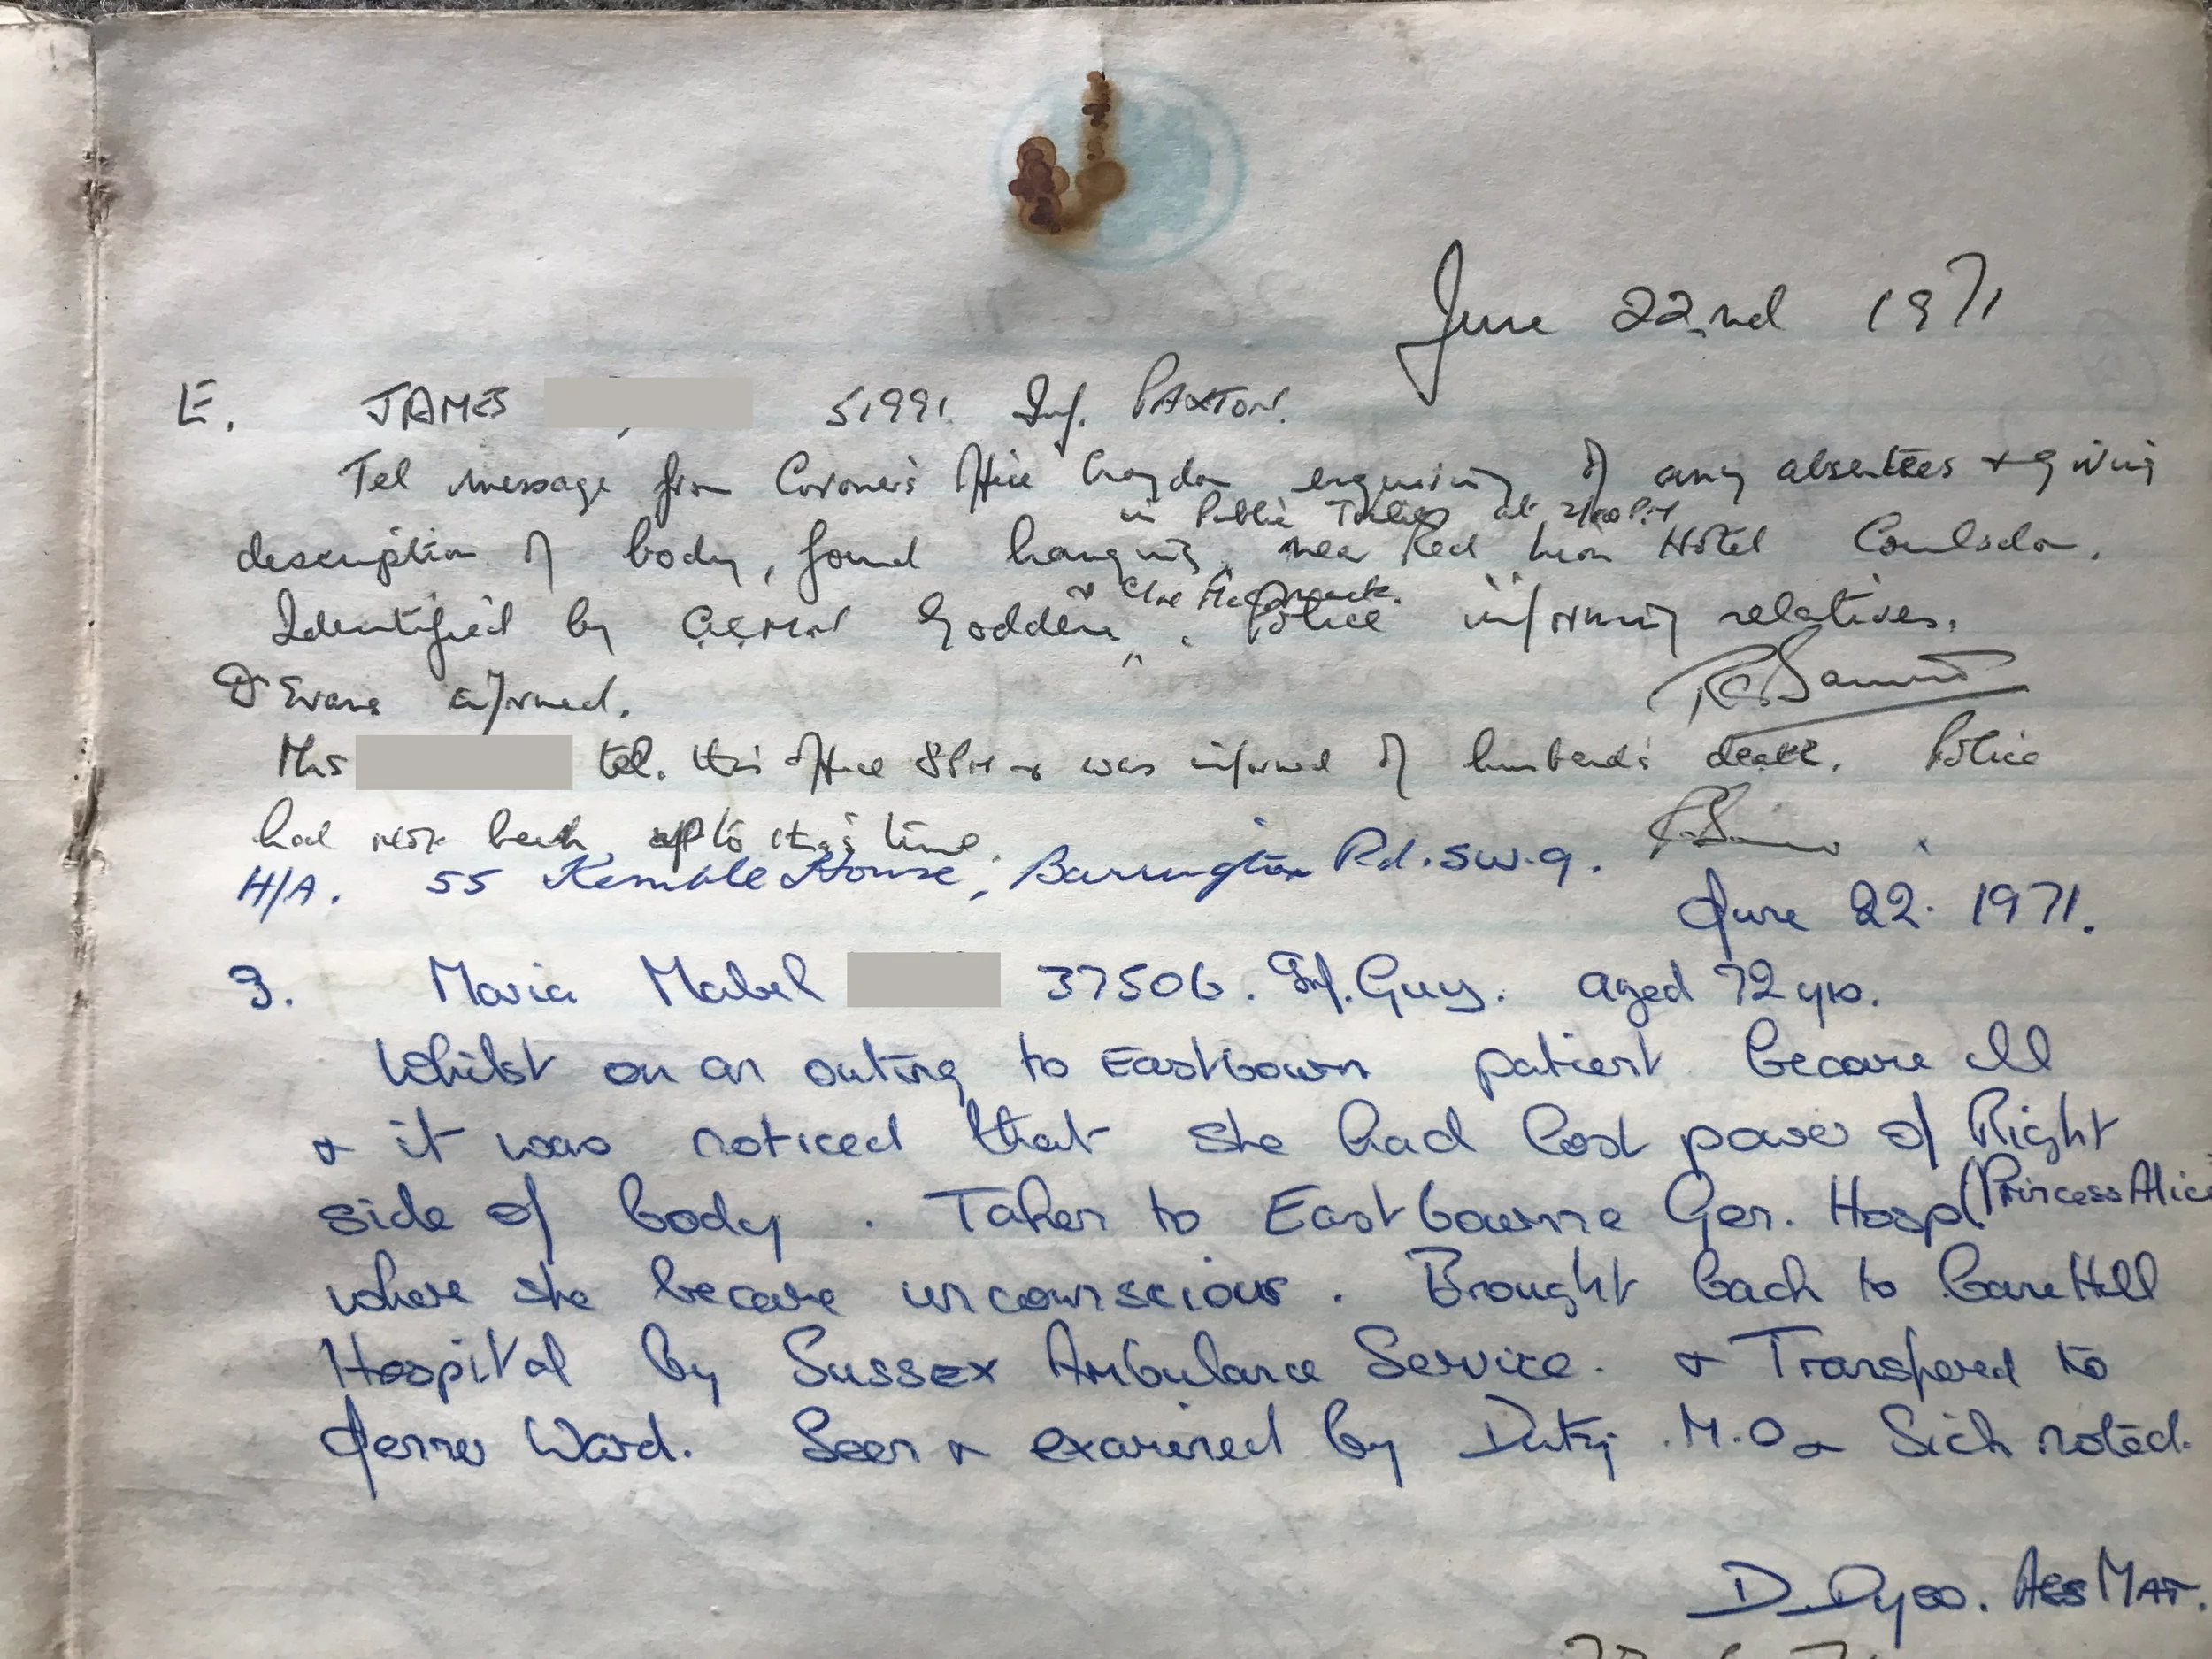 June 22nd 1971
E. JAMES 51991. Inf. PAXTON.
Tel message from Coroner's Office Croydon enquiring of any absentees + giving
in Public Toilets at 2/00 P.M
description of body, found hanging, near Red Lion Hotel Coulsdon.
+ C/ne
Identified by Godden. Police informing relatives.
Dr Evans informed.
Mrs tel. this office 8PM + was informed of husband's death. Police
had not been up to this time.
H/A. 55 Kemble House, Barrington Rd. SW.9.
June 22. 1971.
9. Maria Mabel 37506. Inf. Guy. aged 72 yrs.
Whilst on an outing to Eastbourn patient became ill
+ it was noticed that she had lost power of Right
side of body. Taken to Eastbourne Gen. Hosp (Princess Alice
where she became unconscious. Brought back to Cane Hill
Hospital by Sussex Ambulance Service. + Transfered to
Jenner Ward. Seen + examined by Duty M.O + Sick noted.
D. Dyso. Ass Mat.